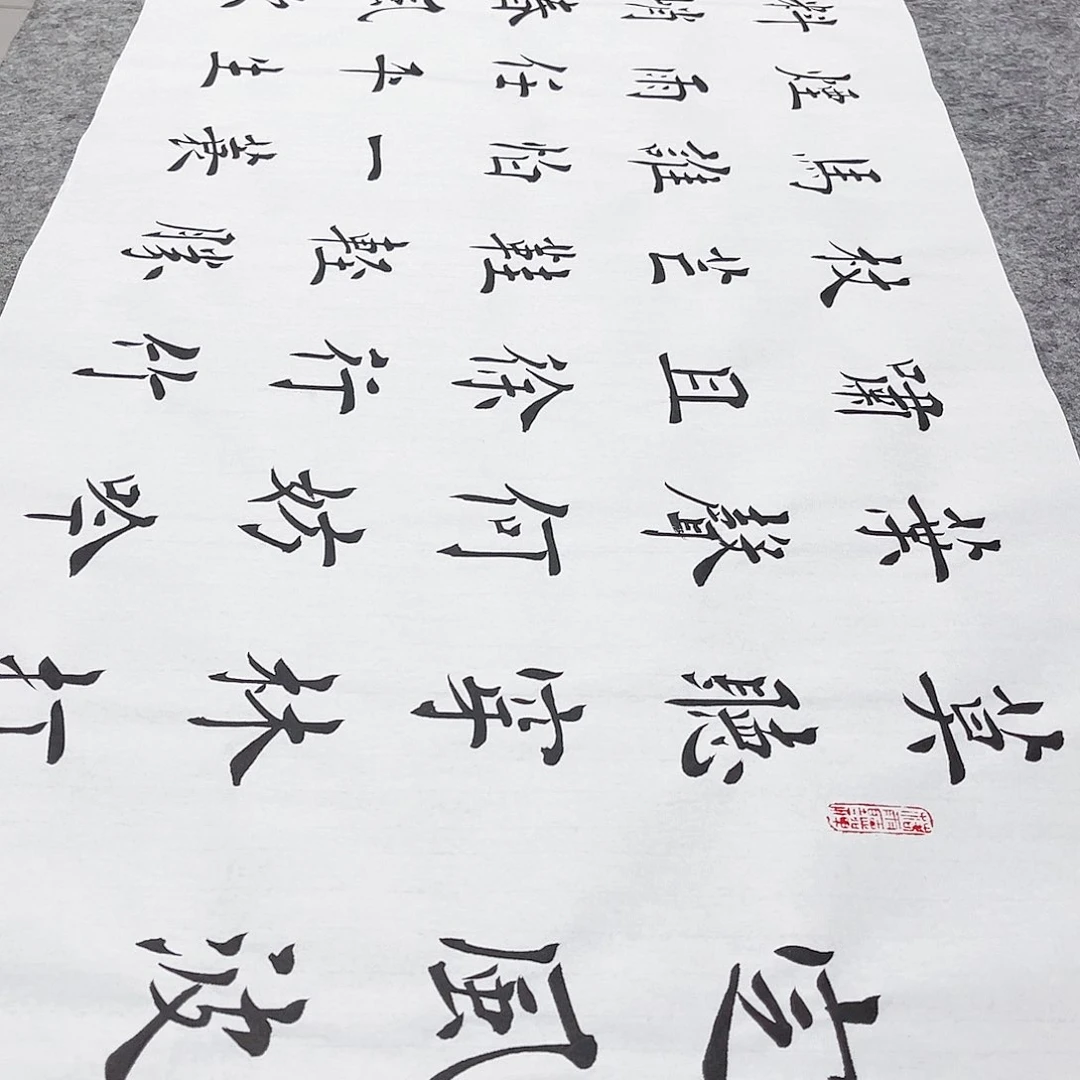 定風波
莫聽穿林打
葉聲何妨吟
嘯且徐行竹
杖芒鞋輕勝
馬誰怕一蓑
煙雨任平生
料峭春風